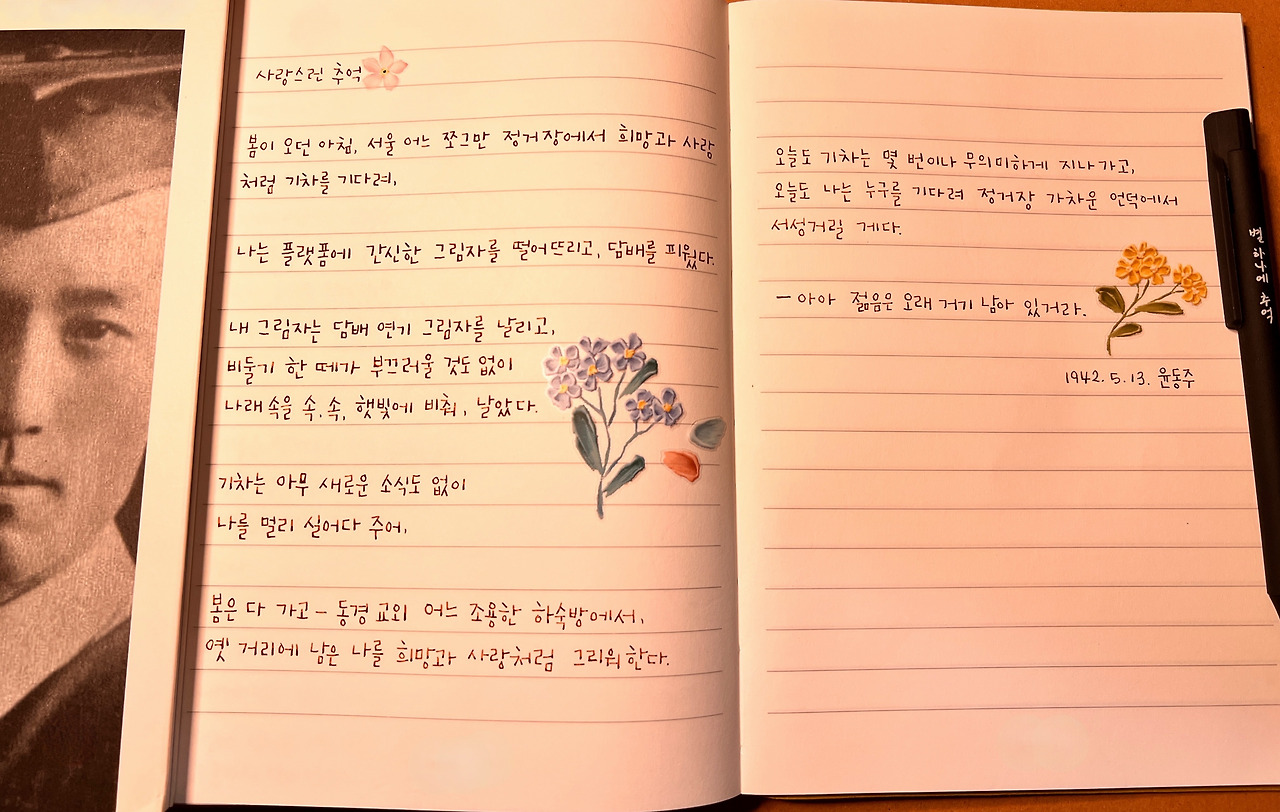 사랑스런 추억
봄이 오던 아침, 서울 어느 쪼그만 정거장에서 희망과 사랑
처럼 기차를 기다려,
나는 플랫폼에 간신한 그림자를 떨어뜨리고, 담배를 피웠다.
내 그림자는 담배 연기 그림자를 날리고,
비둘기 한 떼가 부끄러울 것도 없이
나래 속을 속, 속, 햇빛에 비춰, 날았다.
기차는 아무 새로운 소식도 없이
나를 멀리 실어다 주어,
봄은 다 가고 - 동경 교외 어느 조용한 하숙방에서,
옛 거리에 남은 나를 희망과 사랑처럼 그리워한다.
오늘도 기차는 몇 번이나 무의미하게 지나가고,
오늘도 나는 누구를 기다려 정거장 가차운 언덕에서
서성거릴 게다.
- 아아 젊음은 오래 거기 남아 있거라.
1942. 5. 13. 윤동주
별 하나에 추억